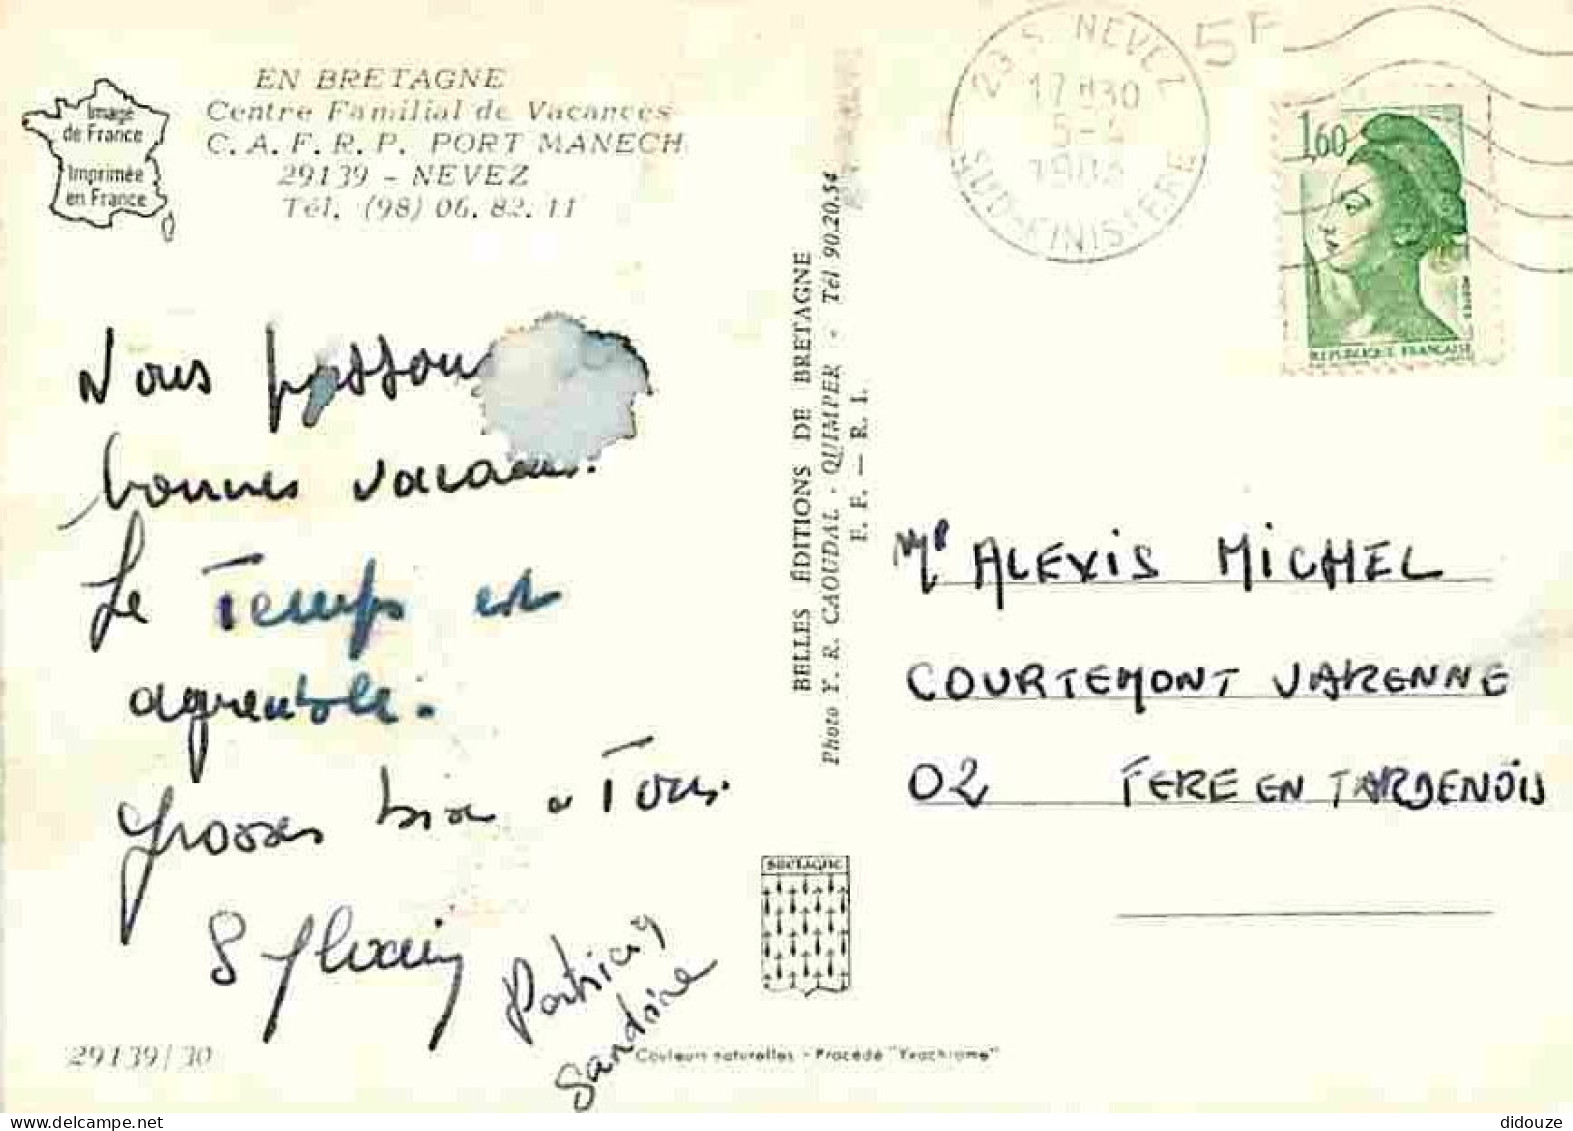 EN BRETAGNE
Centre Familial de Vacances
C. A. F. R. P. PORT MANECH
29139 - NEVEZ
Tél. (98) 06. 82. 11
Image
de France
Imprimée
en France
Nous passons
bonnes vacances.
Le Temps est
agréable.
Grosses bises a Tous.
Patricia
Sandrine
29139/30
BELLES ÉDITIONS DE BRETAGNE
Photo Y. R. CAOUDAL - QUIMPER - Tél 90.20.54
E. E. — R. I.
BRETAGNE
Couleurs naturelles - Procédé "Yvachrome"
29 S. NEVEZ
17 H30
SUD-FINISTERE
5F
1,60
POSTES
REPUBLIQUE FRANÇAISE
Mr ALEXIS MICHEL
COURTEMONT VARENNE
02 FERE EN TARDENOIS
didouze